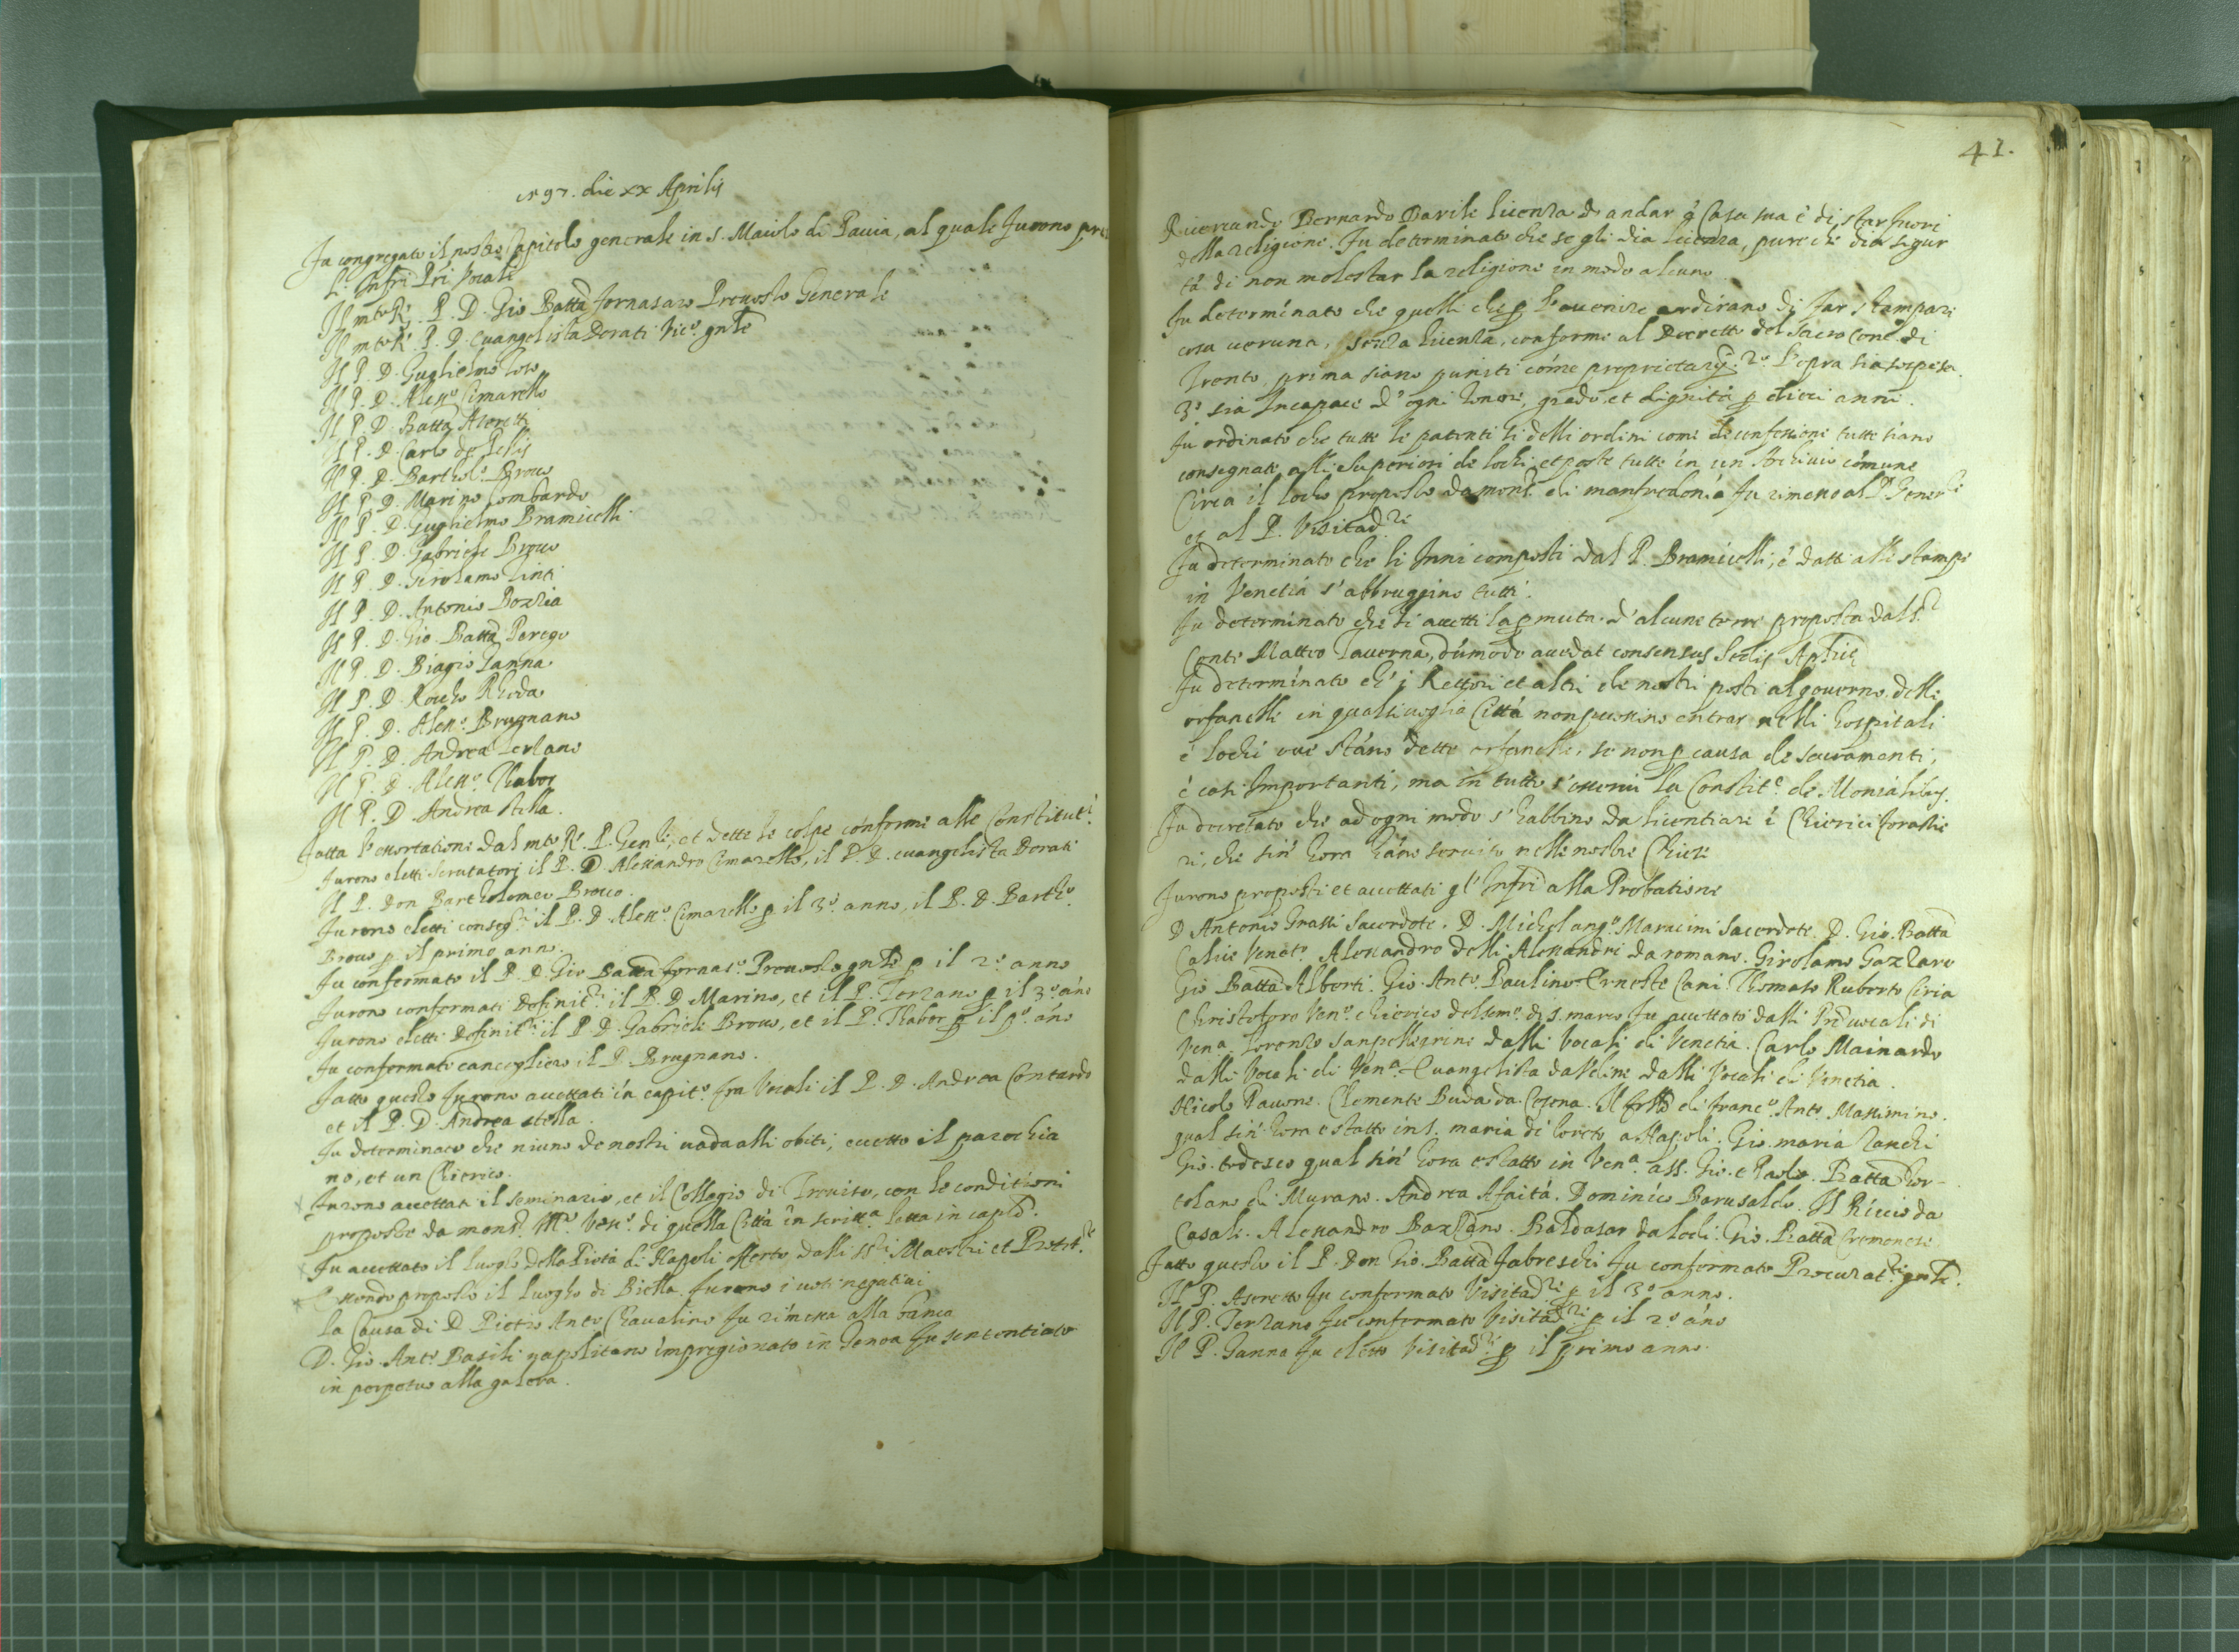 1597. die xx Aprilis
Fu congregato il nostro Capitolo generale in S. Maiolo di Pauia, al quale furono pre
li Infri Pri Vocali
Il mto R. P. D. Gio Batta fornasaro Preuosto Generale
Il mto R. P. D. Euangelista Dorati Vico. gnle
Il P. D. Guglielmo Toso
Il P. D. Aless.o Cimarello
Il P. D. Batta Asereti
Il P. D. Carlo de
Il P. D. Barthol.o Broco
Il P. D. Marino Lombardo
Il P. D. Guglielmo Bramicelli
Il P. D. Gabriele Broco
Il P. D. Girolamo Tinti
Il P. D. Antonio Bozzia
Il P. D. Gio. Batta Perego
Il P. D. Biagio Ganna
Il P. D. Rocho Rheda
Il P. D. Aless.o Brugnano
Il P. D. Andrea Terzano
Il P. D. Aless.o Thabor
Il P. D. Andrea stella.
Fatta l'essortatione dal mto R. P. Genle, et dette le colpe conforme alle Constitut.i
furono eletti scrutatori il P. D. Alessandro Cimarello, il P. D. euangelista Dorati
Il P. Don Bartholomeo Broco.
Furono eletti conseg.ri il P. D. Aless.o Cimarello p il 3o. anno, il P. D. Barth.o
Broco p il primo anno.
Fu confermato il P. D. Gio Batta fornas.o Preuosto gnle p il 2o. anno
Furono confirmati Definit.ri il P. D. Marino, et il P. Terzano p il 3o. ano
Furono eletti Definit.ri il P. D. Gabriele Broco, et il P. Thabor p il po. ano
Fu confermato cancegliero il P. Brugnano.
Fatto questo furono accettati in capit.o fra Vocali il P. D. Andrea Contardo
et il P. D. Andrea stella.
Fu determinato che niuno de nostri uada alli obiti, eccetto il parochia
no, et un Chierico.
Furono accettati il seminario, et il Collegio di Treuiso, con le conditioni
proposte da mons.r Vesc.o di quella Città in scritt.a letta in caplo.
Fu accettato il luogho della Pietà di Napoli offerto dalli ss.ri Maestri et Protet.ri
Essendo proposto il luogho di Biella furono i uoti negatiui
La Causa di D. Pietro Anto Chaualino fu rimessa alla banca
D. Gio. Anto Basili napolitano impregionato in Genoa fu sententiato
in perpetuo alla galera.
41.
Ricercando Bernardo Darile licenza de andar à Casa sua è di star fuori
della religione. Fu determinato che se gli dia licenza, pure che dia sigur
tà di non molestar la religione in modo alcuno
Fu determinato che quelli che p l'auenire ardirano di far stampare
cosa ueruna, senza licenza, conforme al Decretto del Sacro Conc.o di
Trento, prima siano puniti come proprietarij. 2o. l'opra sia sospesa
3o sia Incapace d'ogni honore, grado et dignità p dieci anni.
Fu ordinato che tutte le patenti si delli ordini come di confessione tutte siano
consegnate alli Superiori de lochi et poste tutte in un Archiuio comune
Circa il locho proposto da mons.r di manfredonia fu rimesso al P. Generle
et al P. Visitad.ri
Fu determinato che li Inni composti dal P. Bramicelli, è datti alle stampe
in Venetia s'abbruggino tutti.
Fu determinato che si accetti la pmuta d'alcune terre proposta dal S.r
Conte Matteo Tauerna, dumodo accedat consensus Sedis Aplicę
Fu determinato ch' i Rettori et altri de nostri posti al gouerno delle
orfanelle in qualsiuoglia Città non possino entrar nelli hospitali
è lochi oue stano dette orfanelle, se non p causa de sacramenti,
è casi Importanti, ma in tutto s'osserui la Constit.e de Monialibus.
Fu decretato che ad ogni modo s'habbino da licentiare i Chierici forastie
ri, che sin' hora hano seruito nelle nostre Chiese
Furono proposti et accettati gl'Infri alla Probatione
D Antonio Grassi Sacerdote. D. Michelang.o Maracini Sacerdote. D. Gio. Batta
Venet.o Alessandro delli Alessandri da romano. Girolamo Gazzaro
Gio Batta Alberti. Gio. Anto. Paulino. Ernesto Cani. Thomaso Ruberto Ciria
Christoforo Ven.o chierico del sem.o di S. marco fu accettato dalli Pri uocali di
Ven.a Lorenzo Sanpellegrino dalli Vocali di Venetia. Carlo Mainardo
dalli Vocali di Ven.a Euangelista dall'eline dalli Vocali di Venetia.
Nicolo Pauone. Clemente Buda da Cesena. Il frllo di Franc.o Anto Massimino.
qual sin' hora e statto in S. maria di loreto a Napoli. Gio. maria Zanchi
Gio. todesco qual sin' hora e statto in Ven.a a SS. Gio. e Paolo. Batta Hor-
tolano di Murano. Andrea Afaità. Dominico Barusaldo. Il Riccio da
Casali. Alessandro Bazzano. Baldasar da lodi. Gio. Batta Cremonese
Fatto questo il P. Don Gio. Batta Fabreschi fu confermato Procurat.re gnle.
Il P. Asereto fu confermato Visitad.re p il 3o anno.
Il P. Terzano fu confermato Visitad.re p il 2o ano
Il P. Ganna fu eletto Visitad.re p il primo anno.